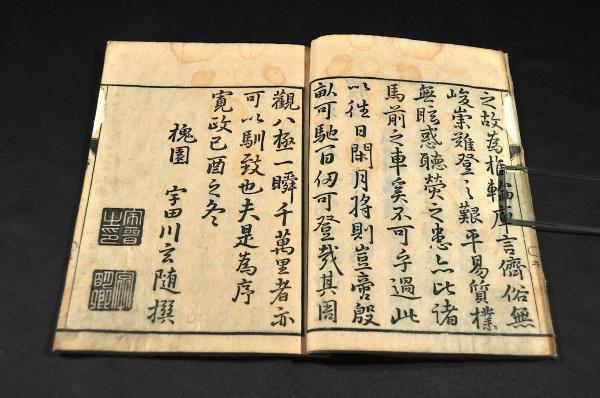 之故為 言儕俗無
峻崇難登之艱平易質樸
無眩惑聽熒之患亦比諸
馬前之車矣不可乎過此
以往日閑月將則豈啻殷
畝可馳百仞可登哉其周
觀八極一瞬千萬里者亦
可以馴致也夫是為序
寛政己酉之冬
槐園 宇田川玄隨撰